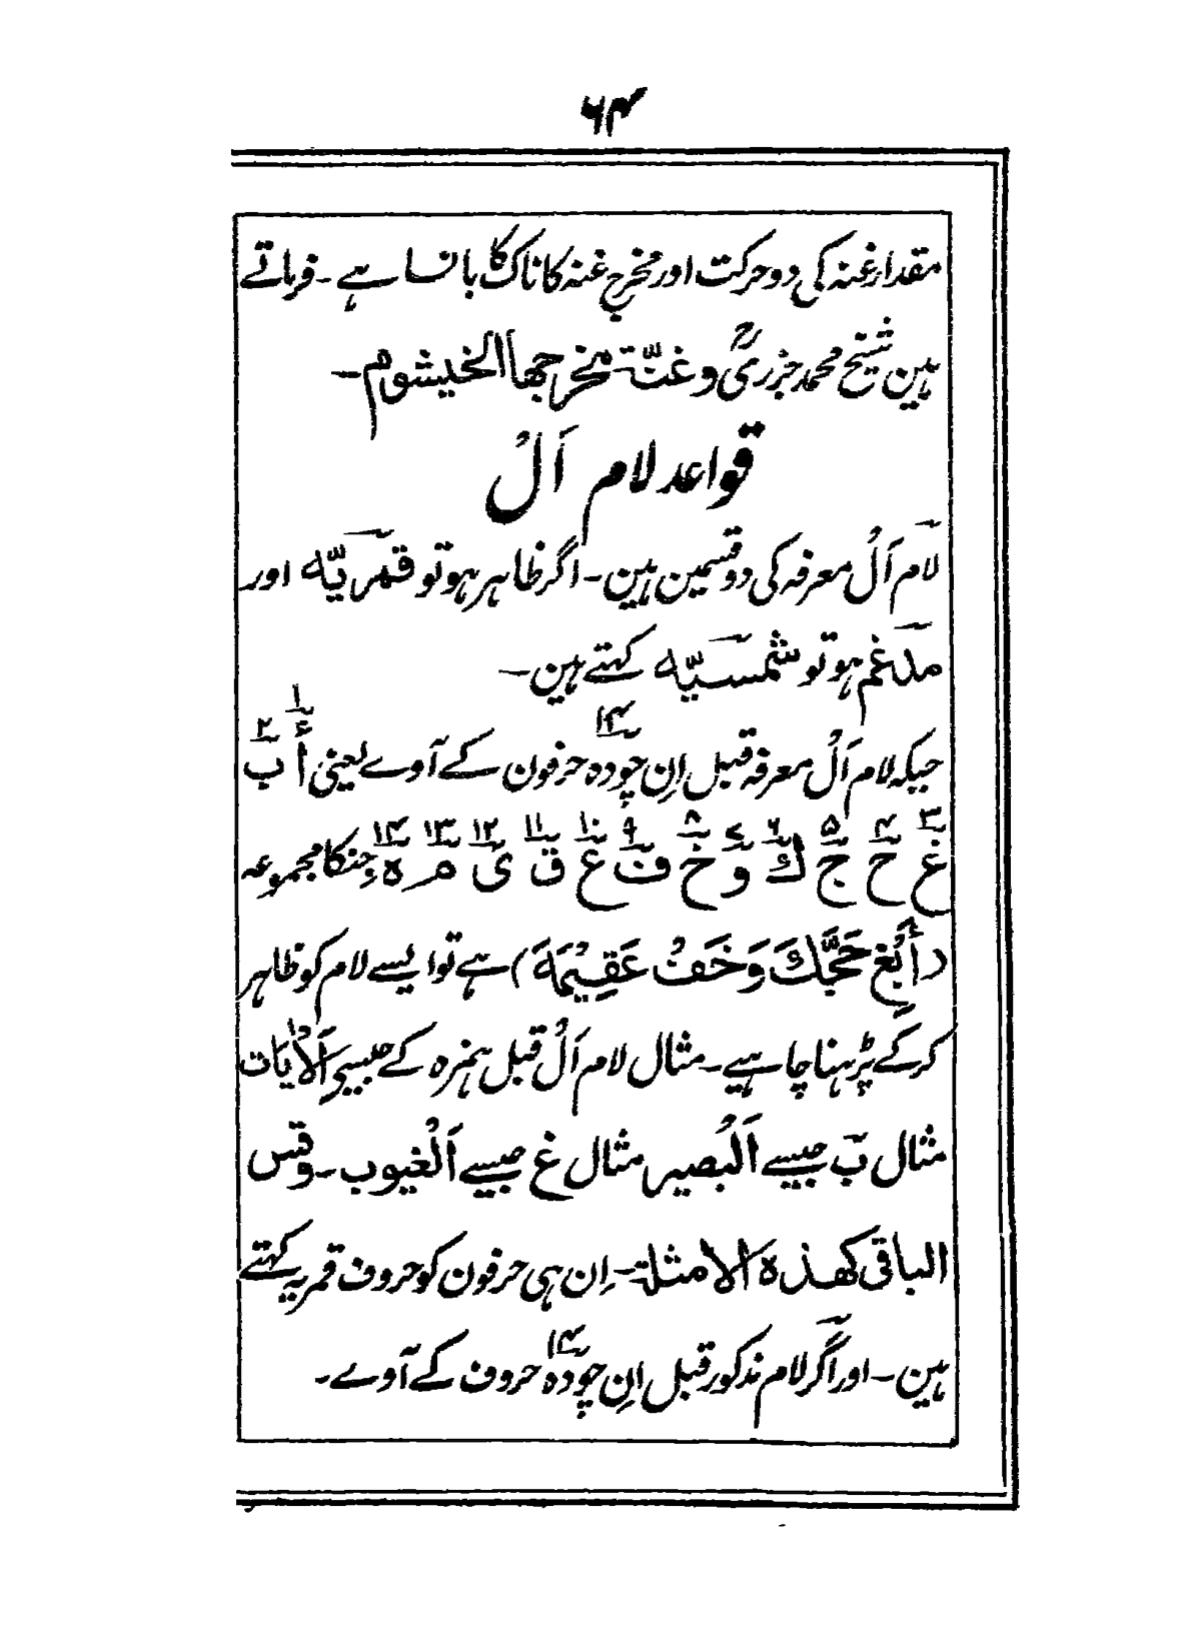 ۶۴
مقدار غنہ کی دو حرکت اور مخرج غنہ کا ناک کا بانسا ہے ۔ فرماتے
ہین شیخ محمد جزریؒ وغنّۃ مخرجھا الخیشوم ۔
قواعد لام اَلْ
لام اَلْ معرفہ کی دو قسمین ہین ۔ اگر ظاہر ہو تو قمریّہ اور
مدغم ہو تو شمسیّہ کہتے ہین ۔
جبکہ لام اَلْ معرفہ قبل اِن چودہ ۱۴ حرفون کے آوے یعنی أ ۱ ب ۲
غ ۳ ح ۴ ج ۵ ك ۶ و ۷ خ ۸ ف ۹ ع ۱۰ ق ۱۱ ی ۱۲ م ۱۳ ہ ۱۴ جنکا مجموعہ
(أَبْغِ حَجَّكَ وَخَفْ عَقِيْمَهَ) ہے تو ایسے لام کو ظاہر
کرکے پڑہنا چاہیے ۔ مثال لام اَلْ قبل ہمزہ کے جیسے اَلْاٰیَات
مثال ب جیسے اَلْبَصیر مثال غ جیسے اَلْغیوب ۔ وقس
الباقی کھذہ الامثلۃ ۔ اِن ہی حرفون کو حروف قمریہ کہتے
ہین ۔ اور اگر لام مذکور قبل اِن چودہ ۱۴ حروف کے آوے ۔